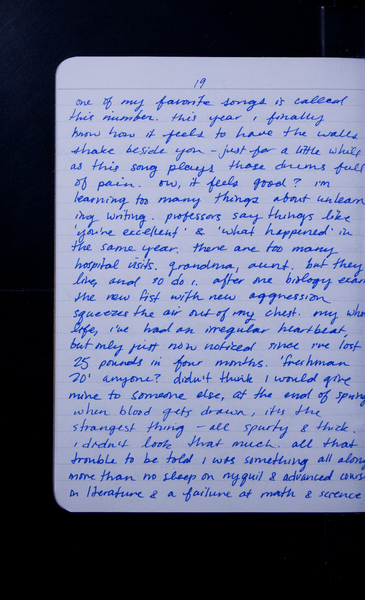 19
one of my favorite songs is called
this number. this year, i finally
know how it feels to have the walls
shake beside you – just for a little while
as this song plays those drums full
of pain. ow, it feels good? i'm
learning too many things about unlearn
ing writing. professors say things like
'you're excellent' & 'what happened' in
the same year. there are too many
hospital visits. grandma, aunt. but they
live, and so do i. after one biology exam
the new fist with new aggression
squeezes the air out of my chest. my whole
life, i've had an irregular heartbeat,
but only just now noticed since i've lost
25 pounds in four months. 'freshman
20' anyone? didn't think i would give
mine to someone else, at the end of spring
when blood gets drawn, it is the
strangest thing – all spurty & thick.
i didn't look that much. all that
trouble to be told i was something all along
more than no sleep on nyquil & advanced cours
in literature & a failure at math & science